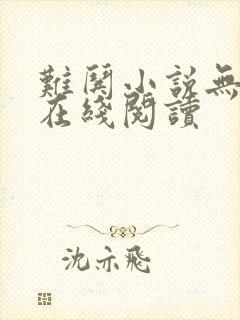 難関小説無
在綫閱讀
沈亦飛